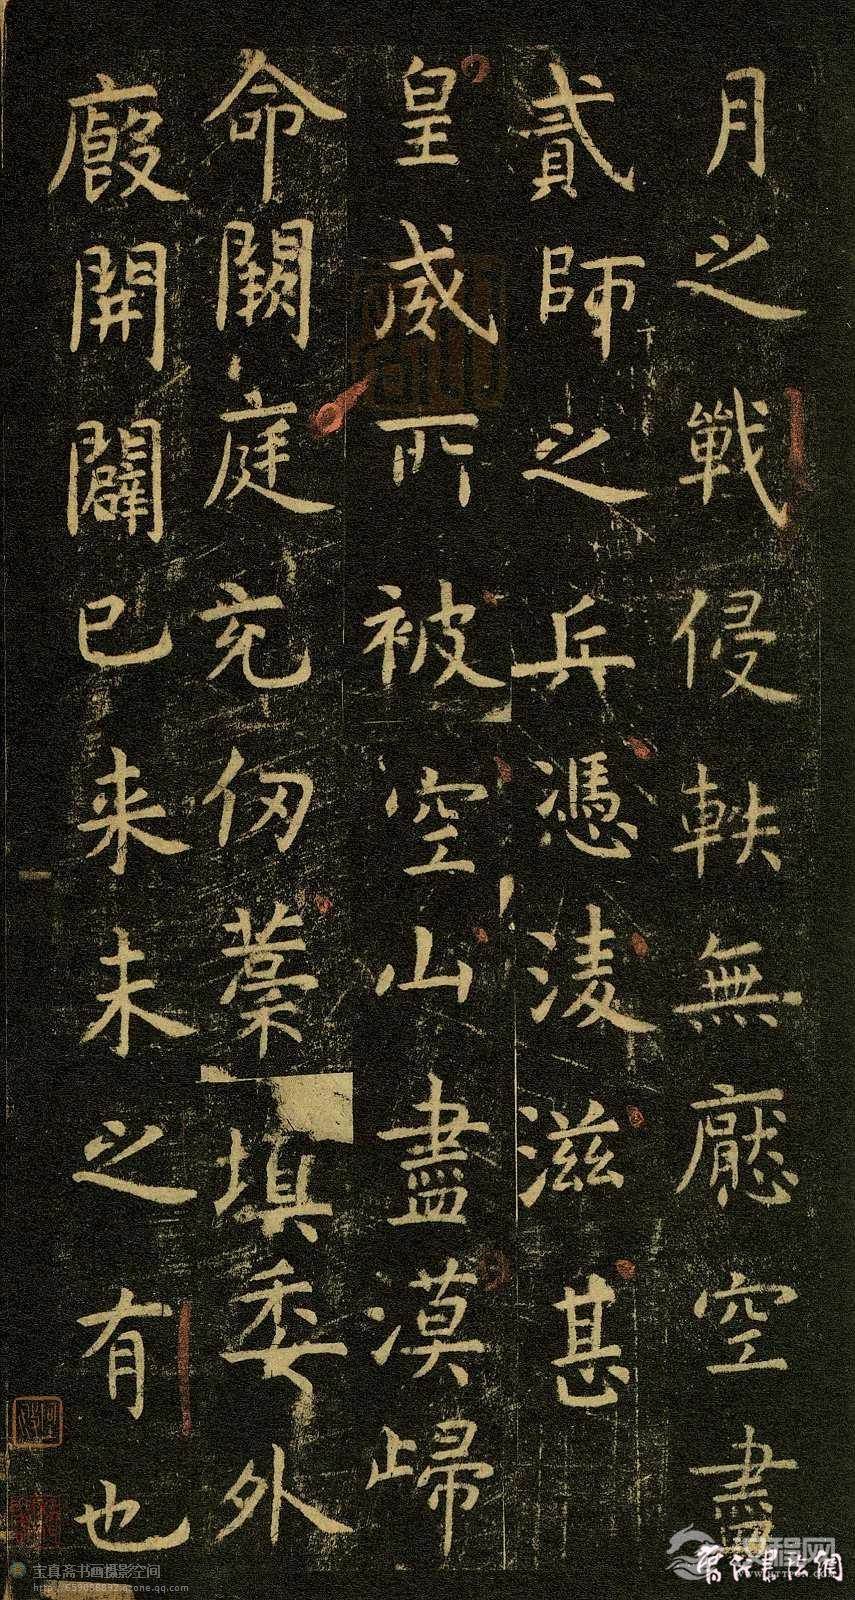 月之戰侵軼無厭空盡
貳師之兵憑淩滋甚
皇威所被空山盡漠歸
命闕庭充仞藁填委外
廄開闢已来未之有也
宝真斋书画摄影空间